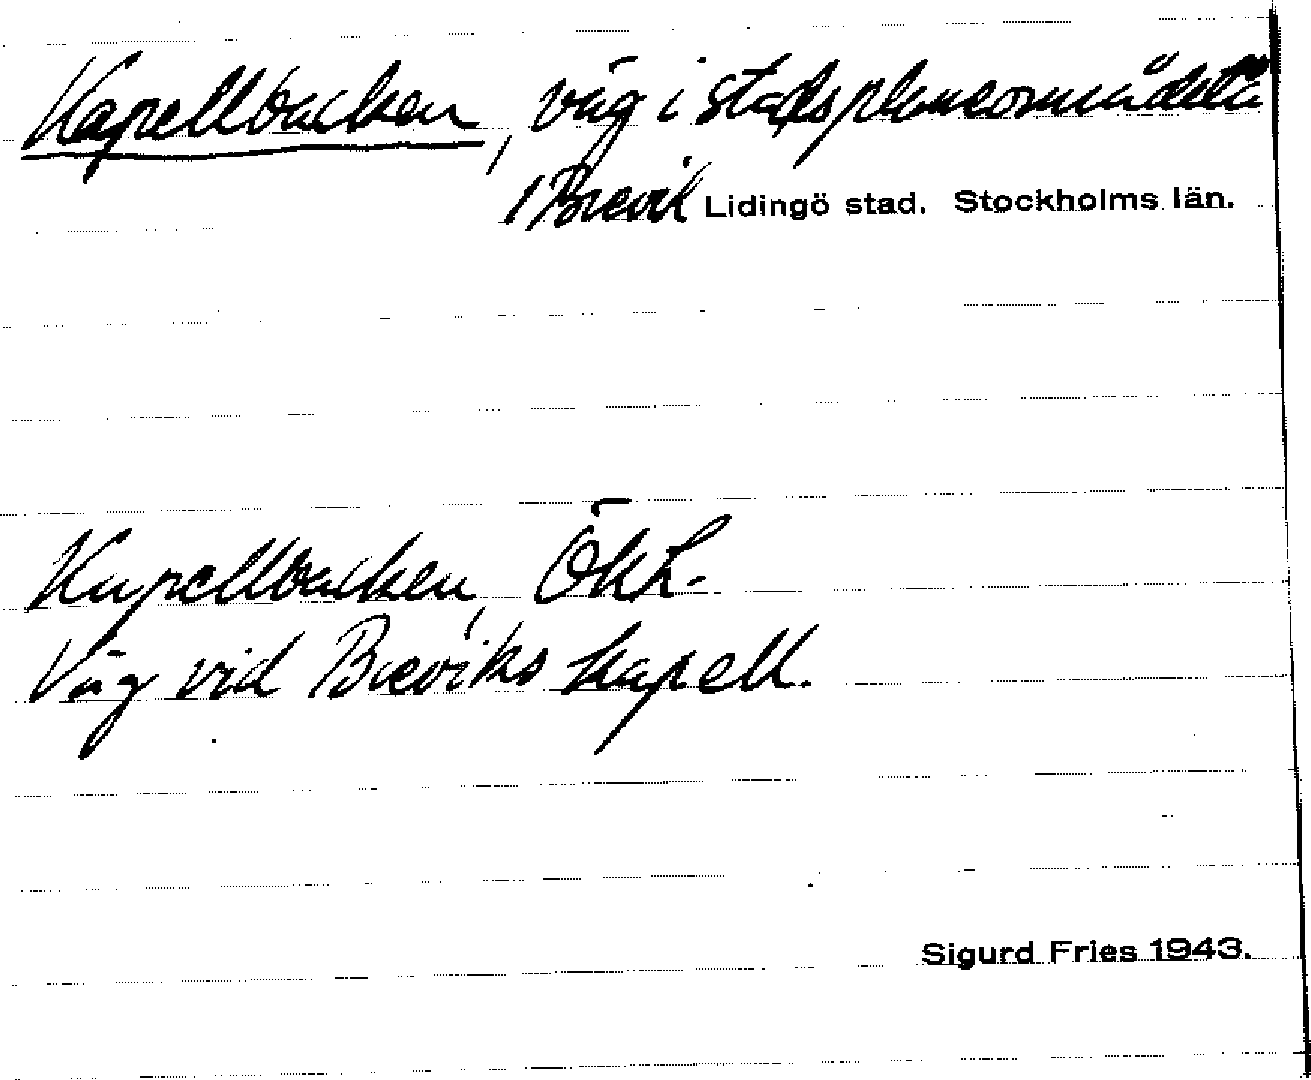 Kapellbacken, väg i stadsplaneområdet
i Brevik Lidingö stad. Stockholms län.
Kapellbacken, ÖkL.
Väg vid Breviks kapell.
Sigurd Fries 1943.